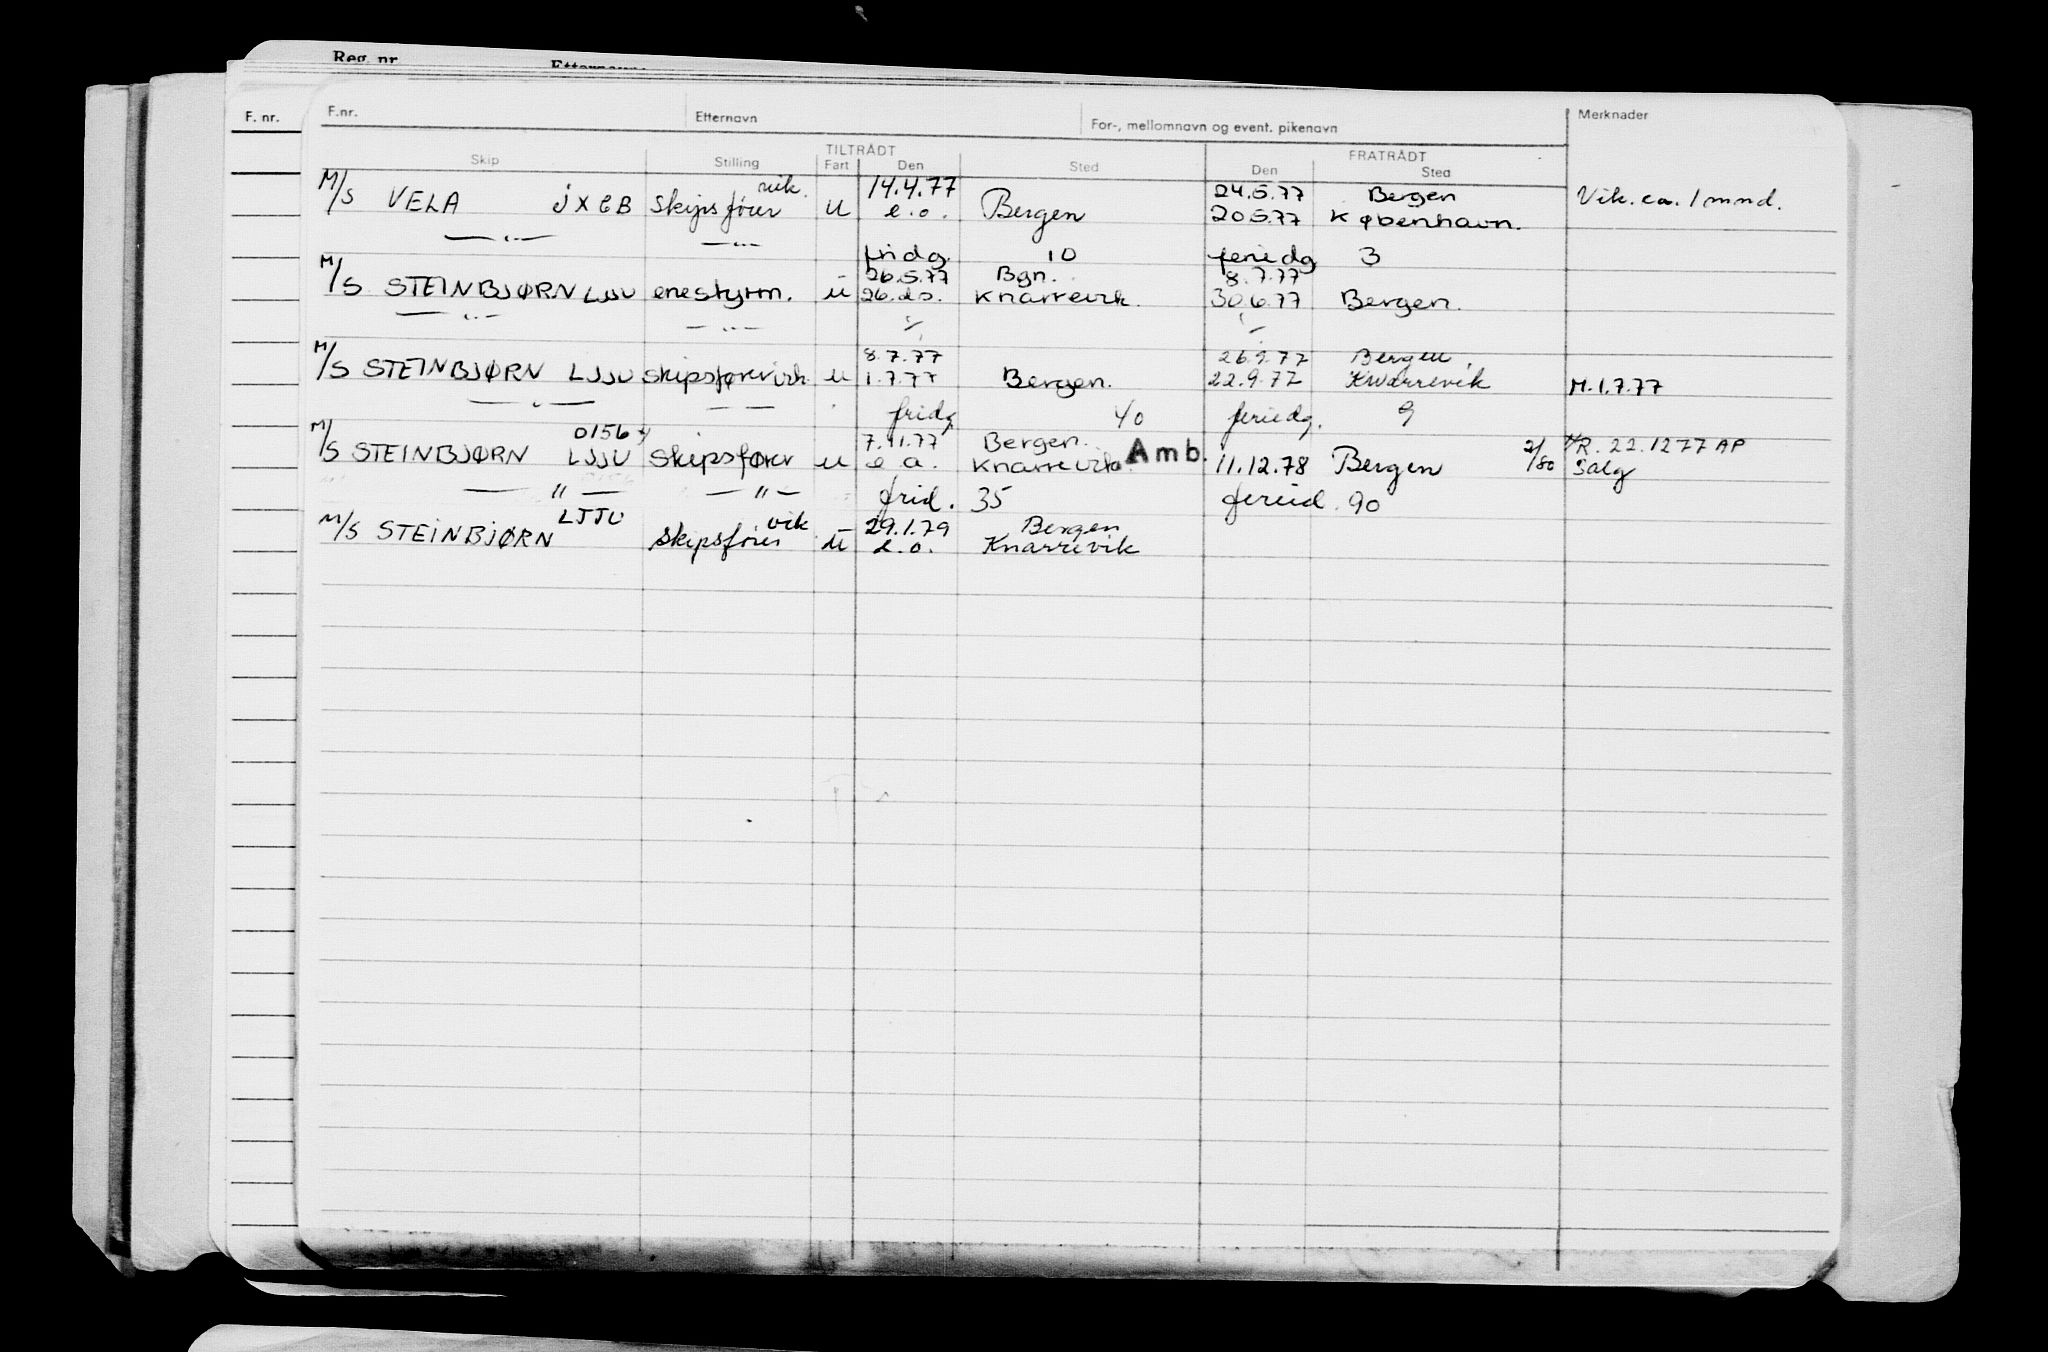 Reg. nr.
F. nr.
F.nr. Etternavn For-, mellomnavn og event. pikenavn Merknader
TILTRÅDT FRATRÅDT
Skip Stilling Fart Den Sted Den Sted
vik. 14.4.77 24.5.77 Bergen
M/S VELA JXCB Skipsfører u e.o. Bergen 20.5.77 København. Vik. ca. 1 mnd.
— " — — " — fridg 10 feriedg 3
26.5.77 Bgn. 8.7.77
M/S STEINBJØRN LJJU enestyrm. u 26.ds. Knarrevik. 30.6.77 Bergen.
— " — — " —
8.7.77 26.9.77 Bergen.
M/S STEINBJØRN LJJU skipsfører vik. u 1.7.77 Bergen. 22.9.77 Knarrevik M.1.7.77
— " — — — fridg 40 feriedg. 9
0156 7.11.77 Bergen. R. 22.12 77 AP
M/S STEINBJØRN LJJU Skipsfører u Knarrevik Amb. 11.12.78 Bergen 2/80 Salg
— " — — " — frid. 35 feried. 90
LJJU vik 29.1.79 Bergen
M/S STEINBJØRN skipsfører u e.o. Knarrevik